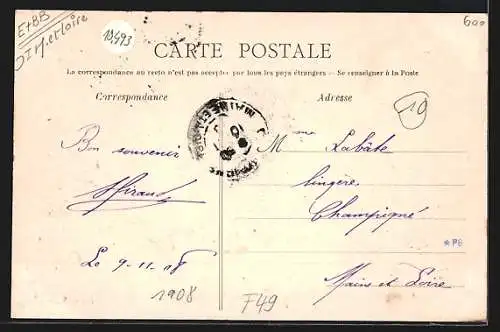 E+BB
DIM.et Loire
19493
600
CARTE POSTALE
La correspondance au recto n'est pas acceptée par tous les pays étrangers — Se renseigner à la Poste
Correspondance
Adresse
19
Bon souvenir
Le 9-11-08
1908
F49
MAINE ET LOIRE
Mme Labâte
lingère
Champigné
*PG
Maine et Loire